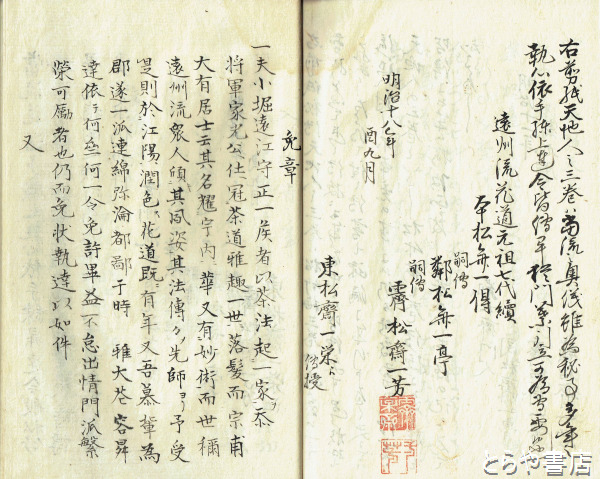 右剪紙天地人之三巻当流奥儀雖為秘事
執心依手練上達令皆傳畢於門葉
遠州流花道元祖七代續
本松斎一得
嗣傳
鄰松斎一亭
嗣傳
霽松斎一芳
明治十八年
酉九月
東松齋一栄ゟ
傳授
免章
一夫小堀遠江守正一矦者以茶法起一家ヲ忝
将軍家光公仕冠茶道雅趣一世落髪而宗甫
大有居士云其名耀宇内華又有妙術而世稱
遠州流衆人傾其風姿其法傳々先師ヨリ予受
是則於江陽潤色花道既ニ有年又吾慕輩為
郡遂一派連綿弥淪都鄙于時 雅大花 容昇
達依ニ何丞一何一令免許畢益不怠出情門派繁
榮可励者也仍而免状執達以如件
又
とらや書店